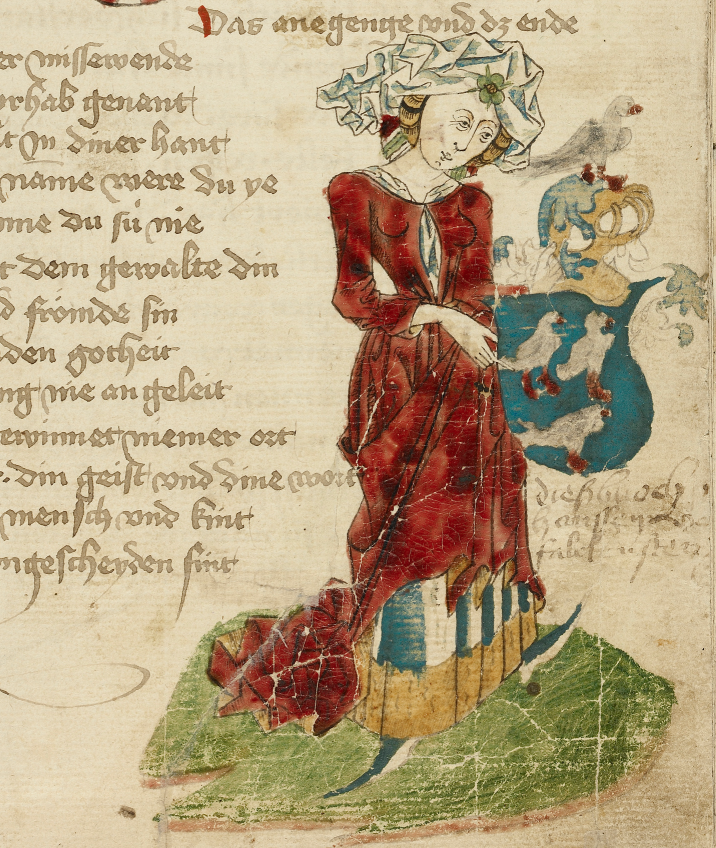 Das anegenge vnd dz ende
er missewende
rhab genant
t in diner hant
name were du ye
me du sú nie
t dem gewalte din
d frömde sin
den gotheit
ng nie an geleit
ewinnet niemer ort
din geist vnd dine wort
mensch vnd kint
ngescheyden sint